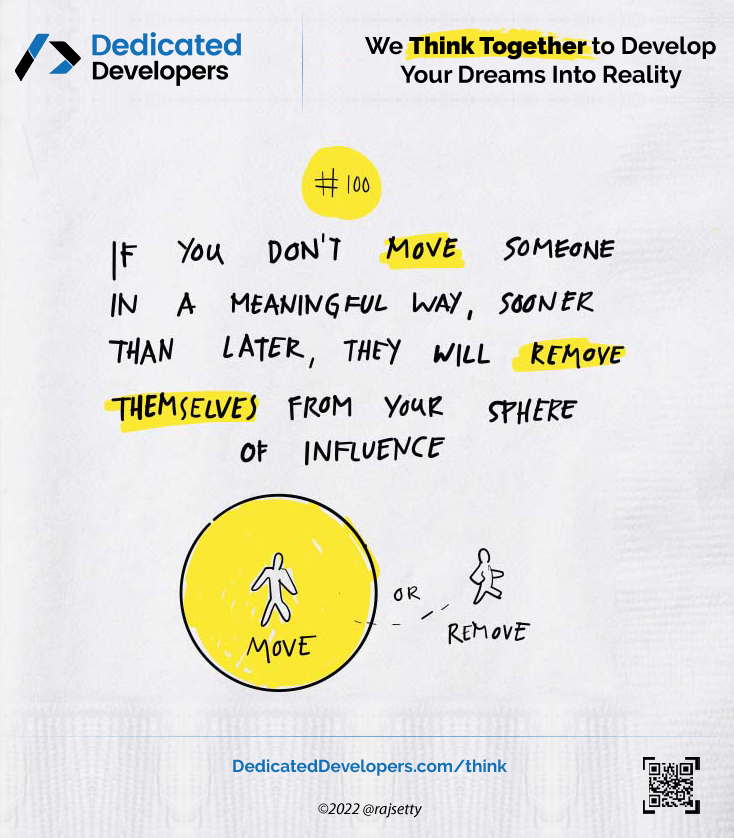 Dedicated
Developers
We Think Together to Develop
Your Dreams Into Reality
#100
IF YOU DON'T MOVE SOMEONE
IN A MEANINGFUL WAY, SOONER
THAN LATER, THEY WILL REMOVE
THEMSELVES FROM YOUR SPHERE
OF INFLUENCE
MOVE
OR
REMOVE
DedicatedDevelopers.com/think
©2022 @rajsetty